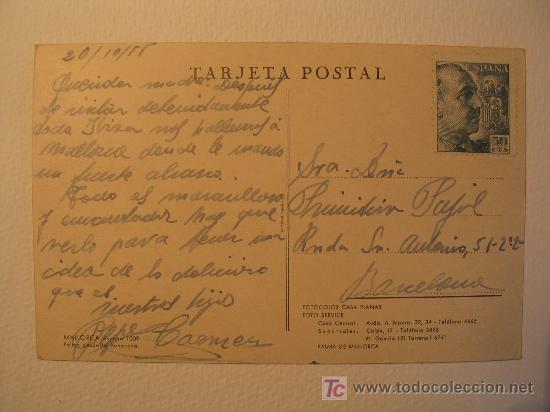 20/10/55
TARJETA POSTAL
Querida madre: Despues
de visitar detenidamente
toda Ibiza nos hallamos á
Mallorca donde le mando
un fuerte abrazo.
Todo es maravilloso
y encantador hay que
verlo para tener una
idea de lo delicioso
que es
nuestros hijos
Pepe Carmen
ESPAÑA
50
CTS
Sra. Dña
Primitiva Pujol
Ronda Sn. Antonio, 51-2º-2ª
Barcelona
MALLORCA 1009
Palma desde la Bonanova.
FOTOCOLOR CASA PLANAS
FOTO SERVICE
Casa Central: Avda. A. Maura, 22, 34 - Teléfono 4665
Sucursales: Colón, 17 - Teléfono 3888
Pl. Gomila (El Terreno) 6741
PALMA DE MALLORCA
TC todocoleccion.net